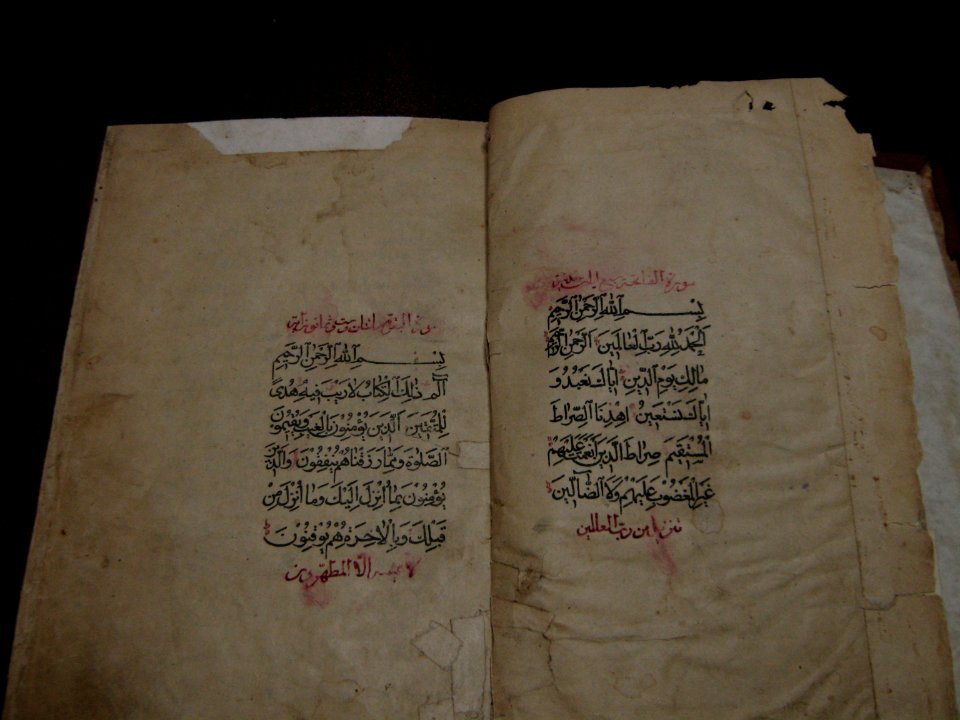 سورة الفاتحة سبع ايات
بِسْمِ اللّٰهِ الرَّحْمٰنِ الرَّحِيْمِ
اَلْحَمْدُ لِلّٰهِ رَبِّ الْعَالَمِيْنَ الرَّحْمٰنِ الرَّحِيْمِ
مَالِكِ يَوْمِ الدِّيْنِ اِيَّاكَ نَعْبُدُ وَ
اِيَّاكَ نَسْتَعِيْنُ اِهْدِنَا الصِّرَاطَ
الْمُسْتَقِيْمَ صِرَاطَ الَّذِيْنَ اَنْعَمْتَ عَلَيْهِمْ
غَيْرِ الْمَغْضُوْبِ عَلَيْهِمْ وَلَا الضَّآلِّيْنَ
تنزيل من رب العالمين
سورة البقرة مائتان وست وثمانون
بِسْمِ اللّٰهِ الرَّحْمٰنِ الرَّحِيْمِ
الٓمٓ ذٰلِكَ الْكِتَابُ لَا رَيْبَ فِيْهِ هُدًى
لِلْمُتَّقِيْنَ الَّذِيْنَ يُؤْمِنُوْنَ بِالْغَيْبِ وَيُقِيْمُوْنَ
الصَّلٰوةَ وَمِمَّا رَزَقْنَاهُمْ يُنْفِقُوْنَ وَالَّذِيْنَ
يُؤْمِنُوْنَ بِمَا اُنْزِلَ اِلَيْكَ وَمَا اُنْزِلَ مِنْ
قَبْلِكَ وَبِالْاٰخِرَةِ هُمْ يُوْقِنُوْنَ
لا يمسه الا المطهرون